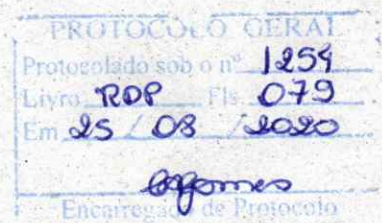 PROTOCOLO GERAL
Protocolado sob o nº 1254
Livro RDP Fls 079
Em 25 / 08 / 2020
Encarregado de Protocolo